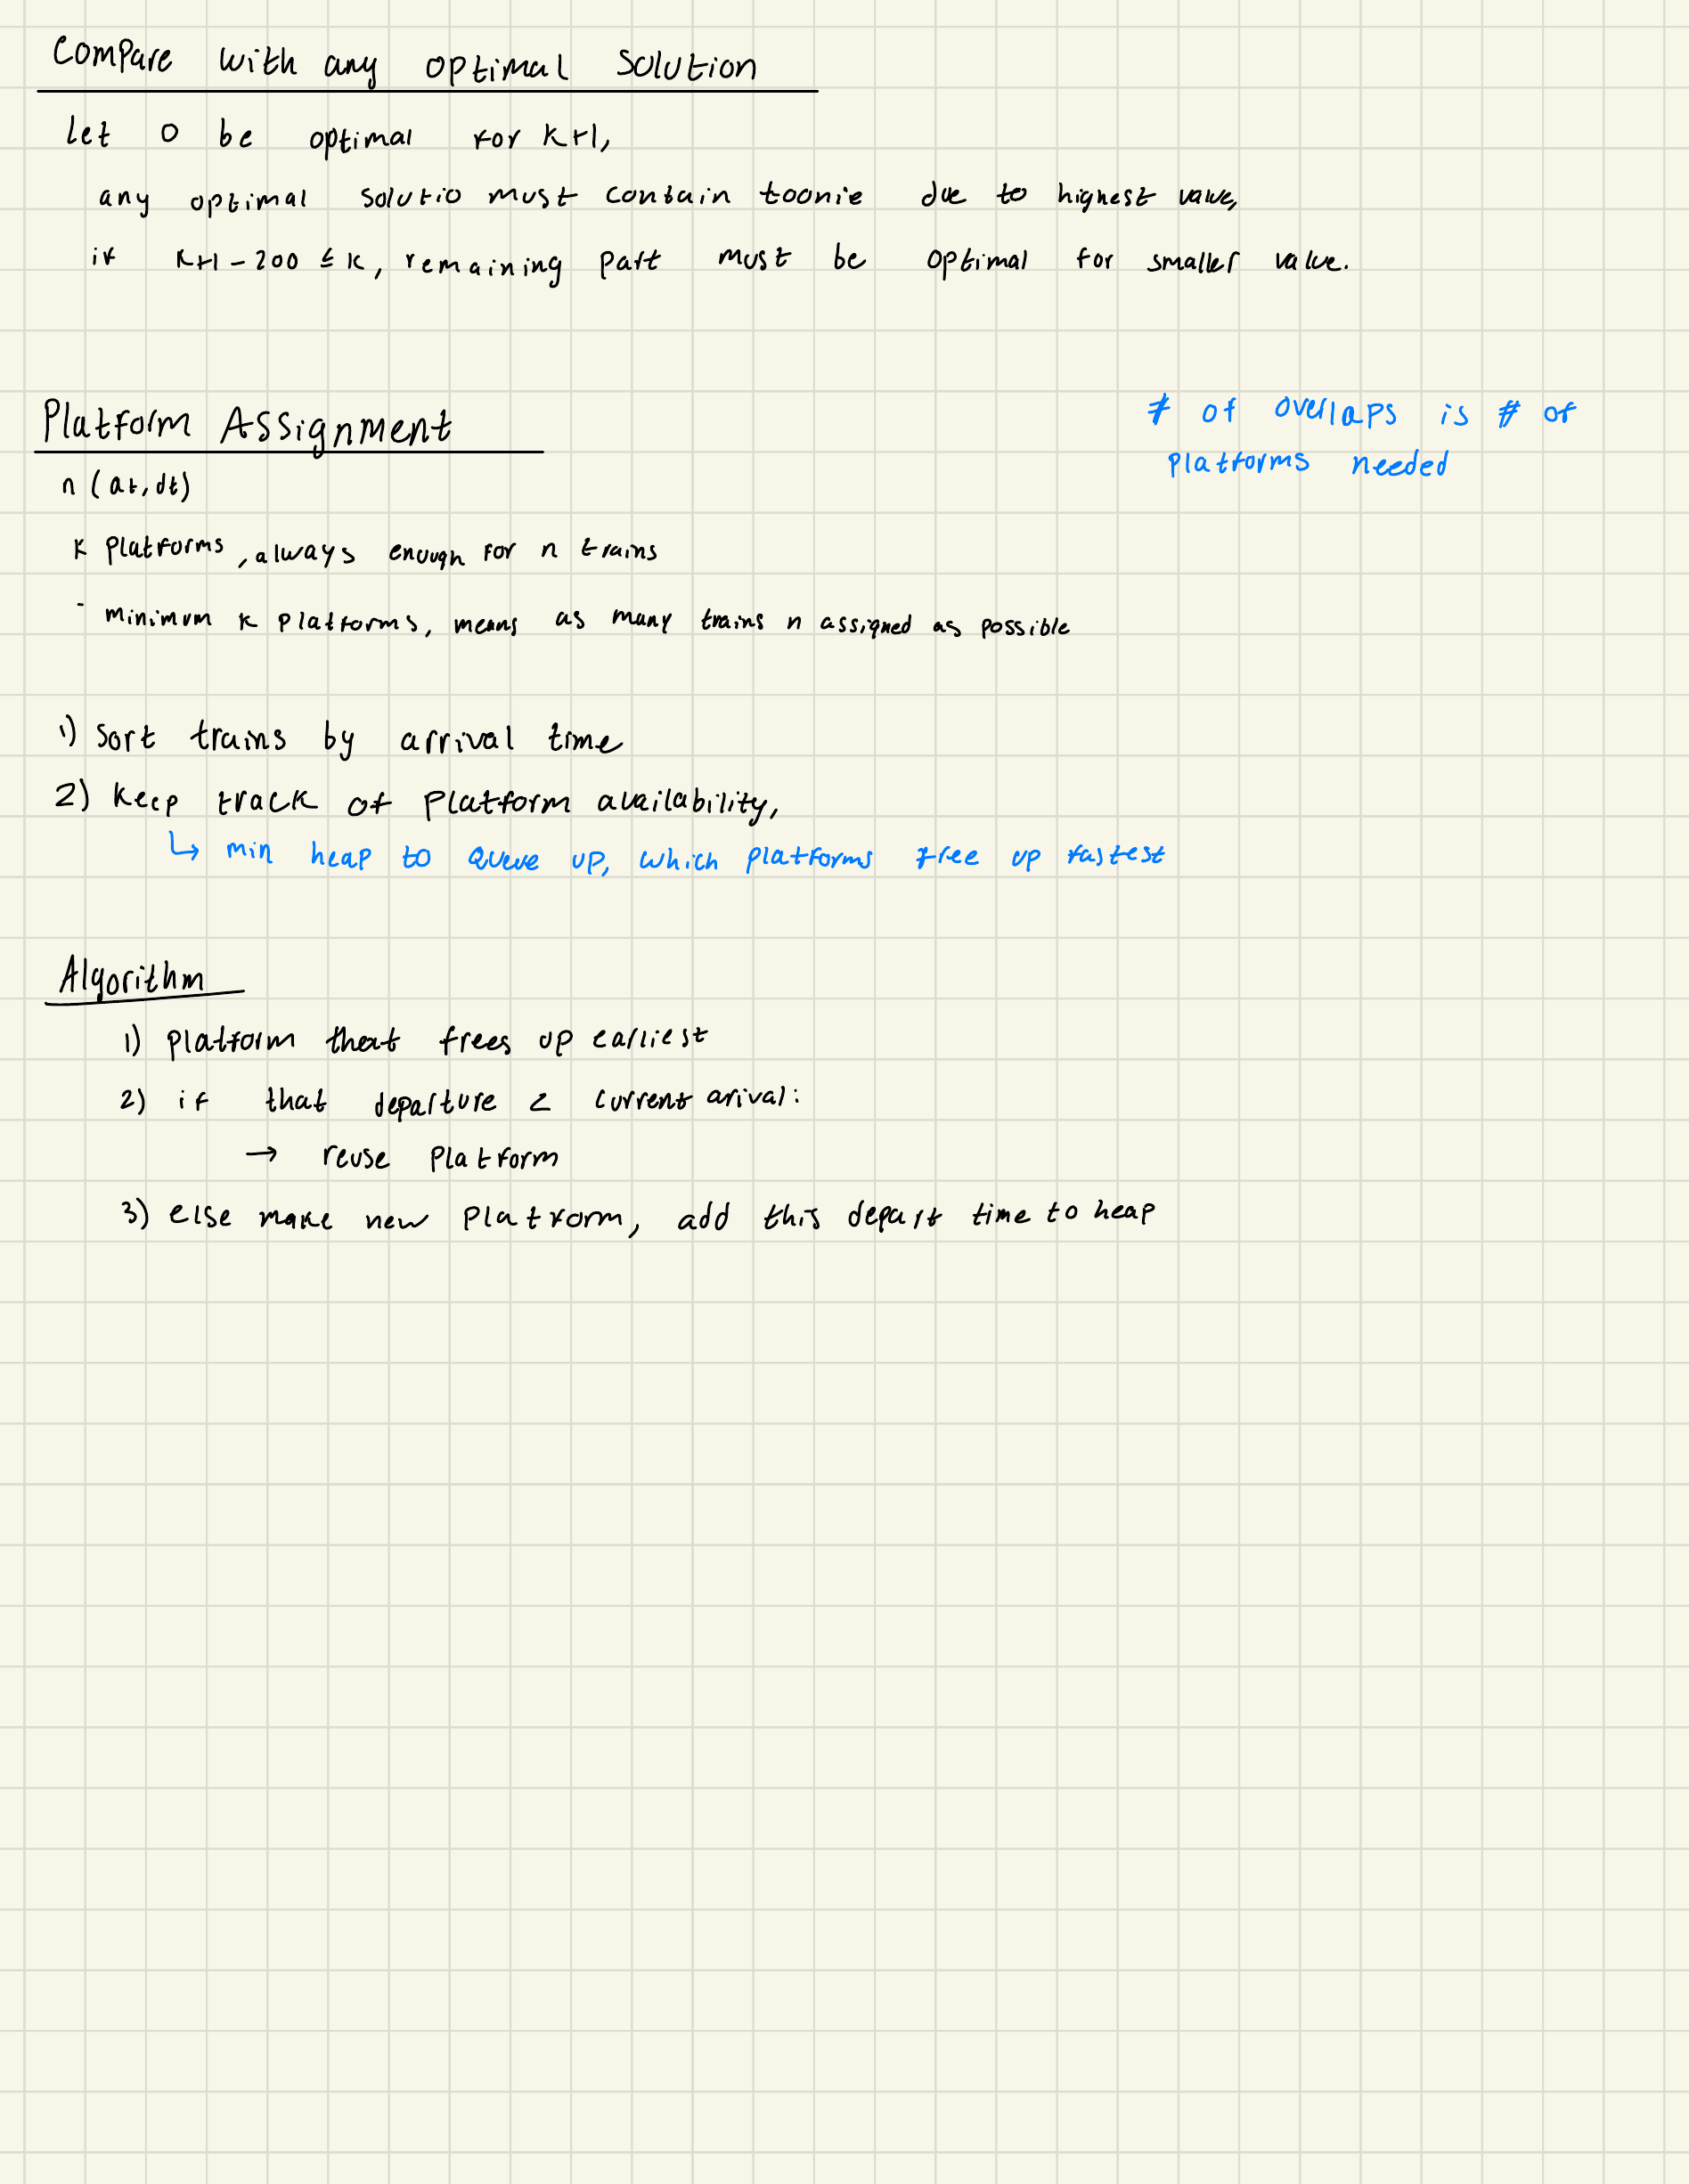 Compare with any optimal solution
Let O be optimal for k+1,
any optimal solutio must contain toonie due to highest value,
if k+1-200 ≤ k, remaining part must be optimal for smaller value.
Platform Assignment
# of overlaps is # of
platforms needed
n (at, dt)
k platforms, always enough for n trains
- minimum k platforms, means as many trains n assigned as possible
1) Sort trains by arrival time
2) Keep track of platform availability,
↳ min heap to queue up, which platforms free up fastest
Algorithm
1) platform that frees up earliest
2) if that departure < current arival:
→ reuse platform
3) else make new platform, add this depart time to heap